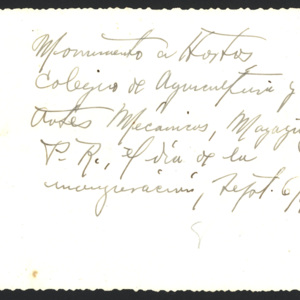 Monumento a Hostos,
Colegio de Agricultura y
Artes Mecánicas, Mayag
P. R., el día de la
inauguración, Sept. 6/